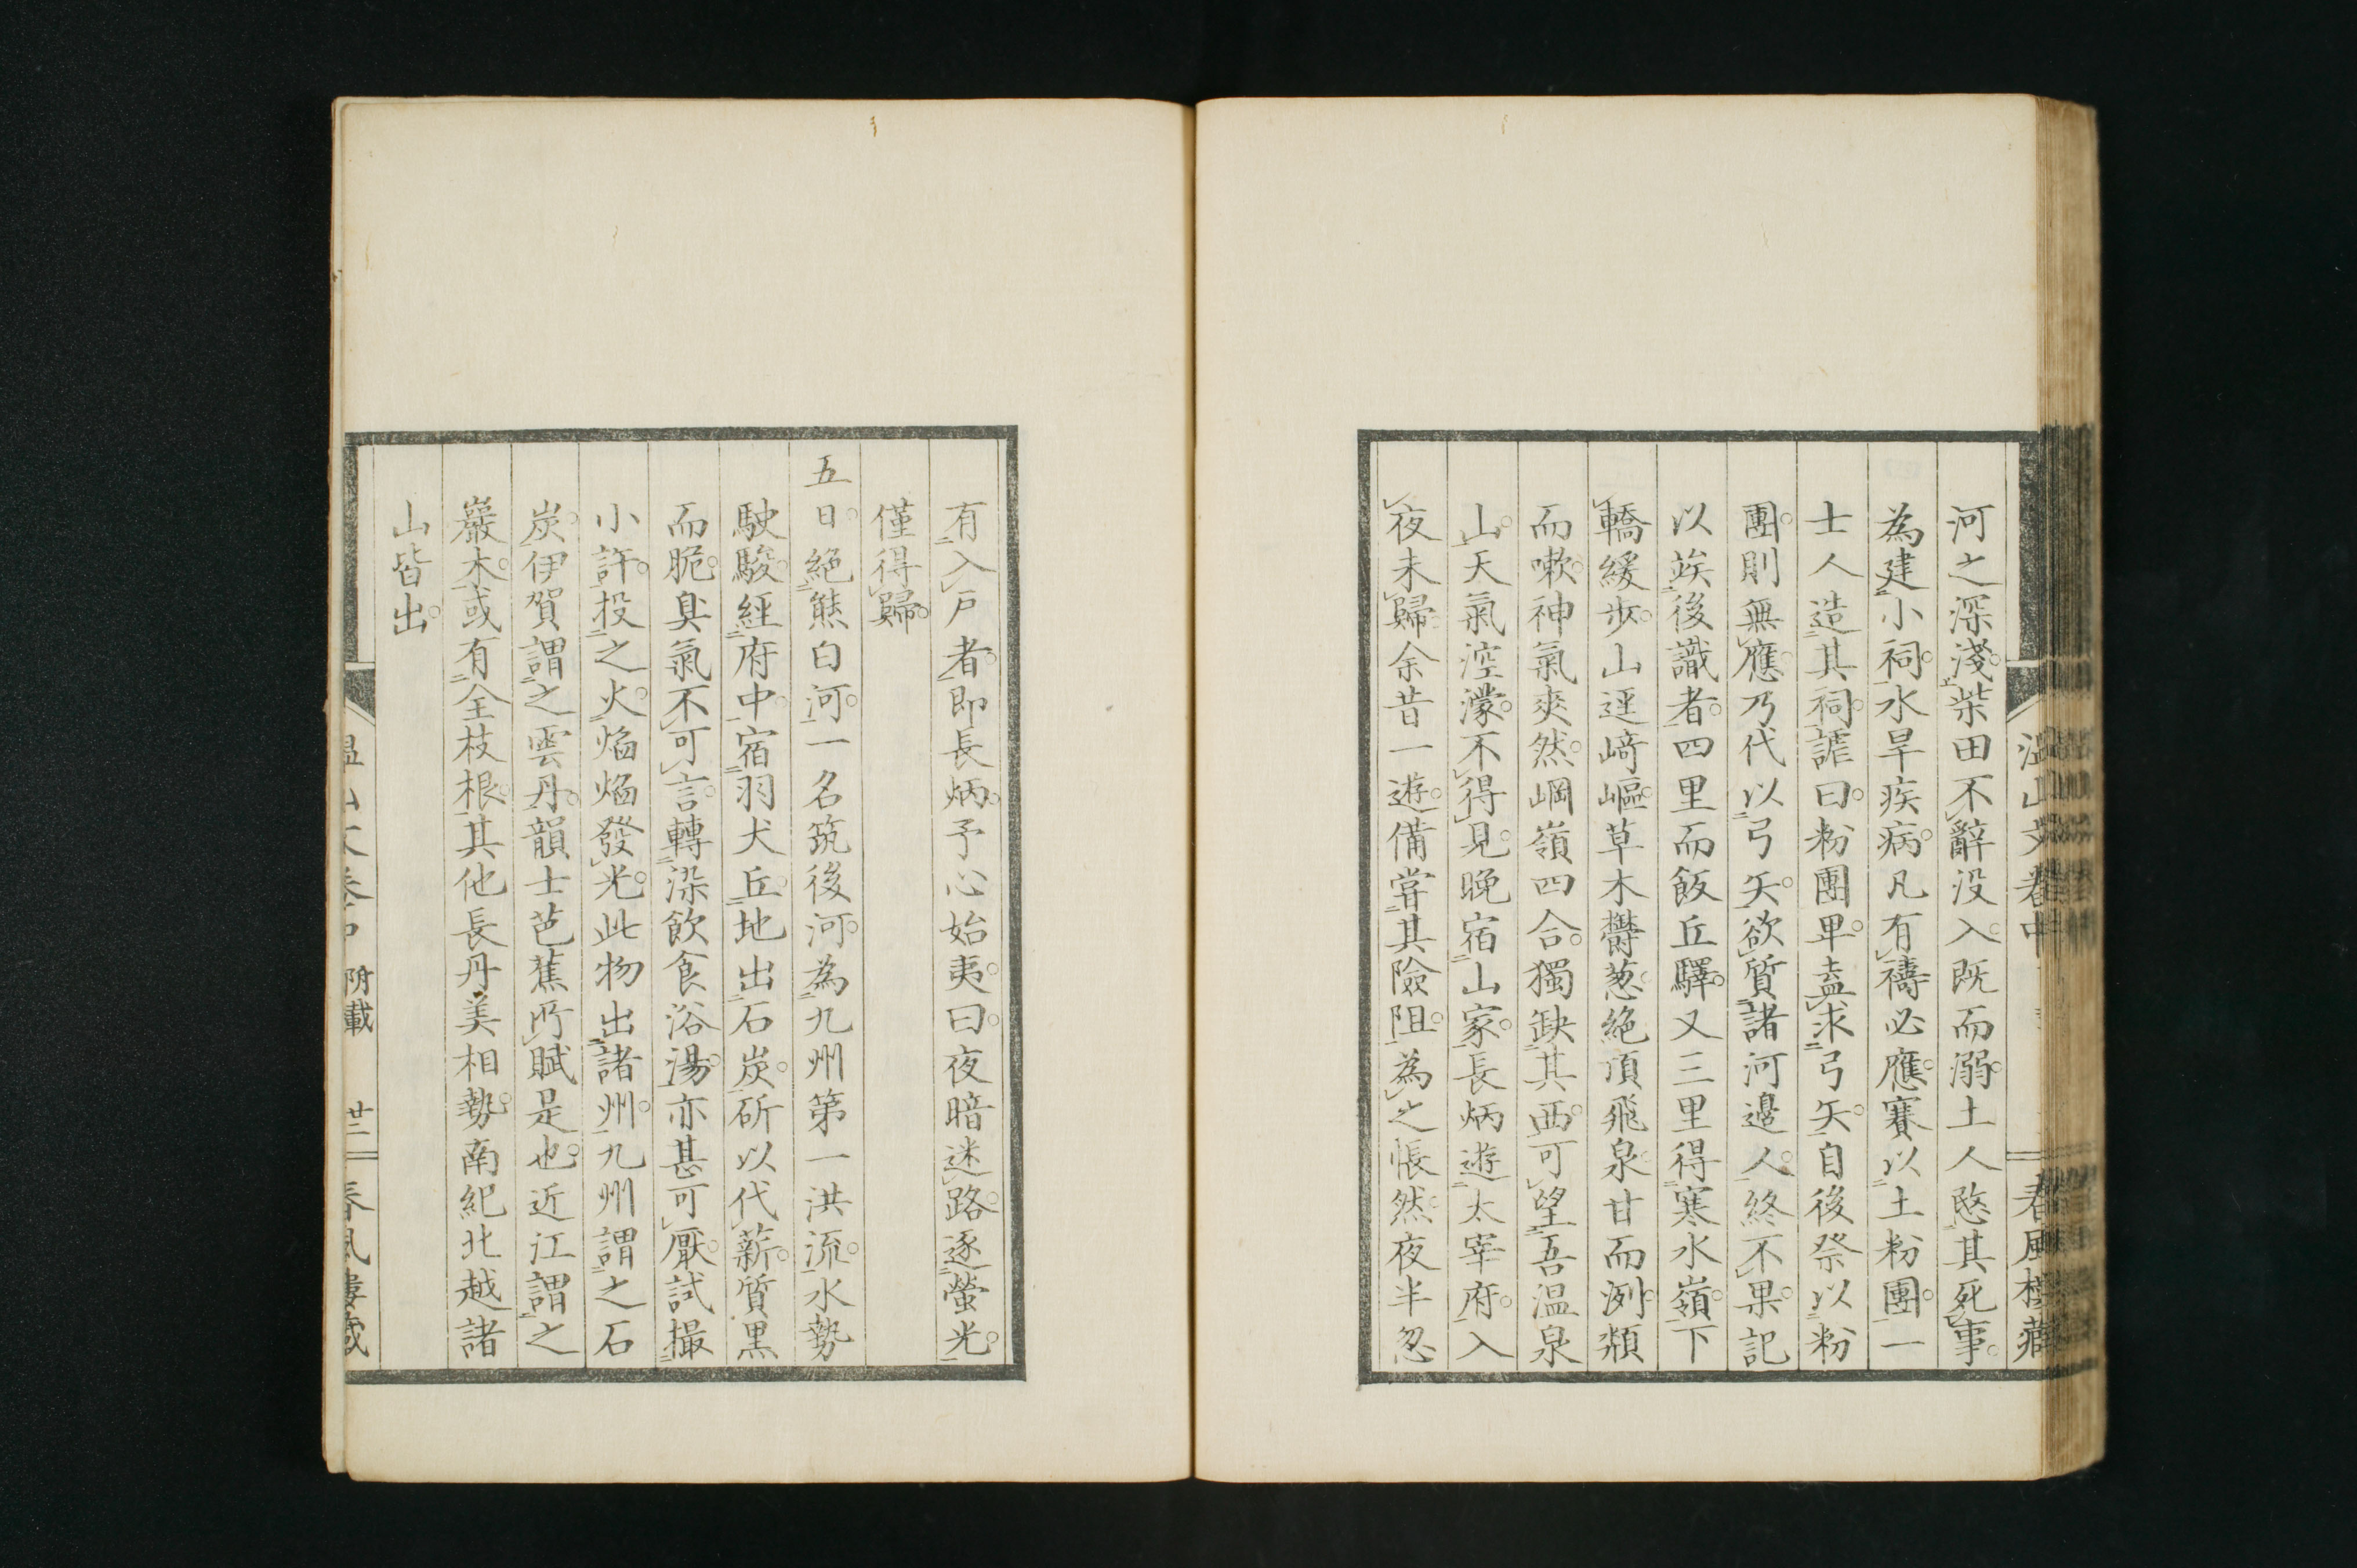 河之深淺柴田不辭没入既而溺土人愍其死事
為建小祠水旱疾病凡有禱必應賽以土粉團一
士人造其祠謔曰粉團畢盍求弓矢自後祭以粉
團則無應乃代以弓矢欲質諸河邊人終不果記
以竢後識者四里而飯丘驛又三里得寒水嶺下
轎緩步山逕崎嶇草木欝葱絶頂飛泉甘而洌類
而嗽神氣爽然岡嶺四合獨缺其西可望吾温泉
山天氣涳濛不得見晚宿山家長炳遊太宰府入
夜未歸余昔一遊備嘗其險阻為之悵然夜半忽
有入戶者即長炳予心始夷曰夜暗迷路逐螢光
僅得歸
五日絶熊白河一名筑後河為九州第一洪流水勢
駛駿經府中宿羽犬丘地出石炭斫以代薪質黒
而脆臭氣不可言轉染飲食浴湯亦甚可厭試撮
小許投之火焔焔發光此物出諸州九州謂之石
炭伊賀謂之雲丹韻士芭蕉所賦是也近江謂之
巖木或有全枝根其他長丹美相勢南紀北越諸
山皆出
温山文卷中
附載
廿二
春風樓藏